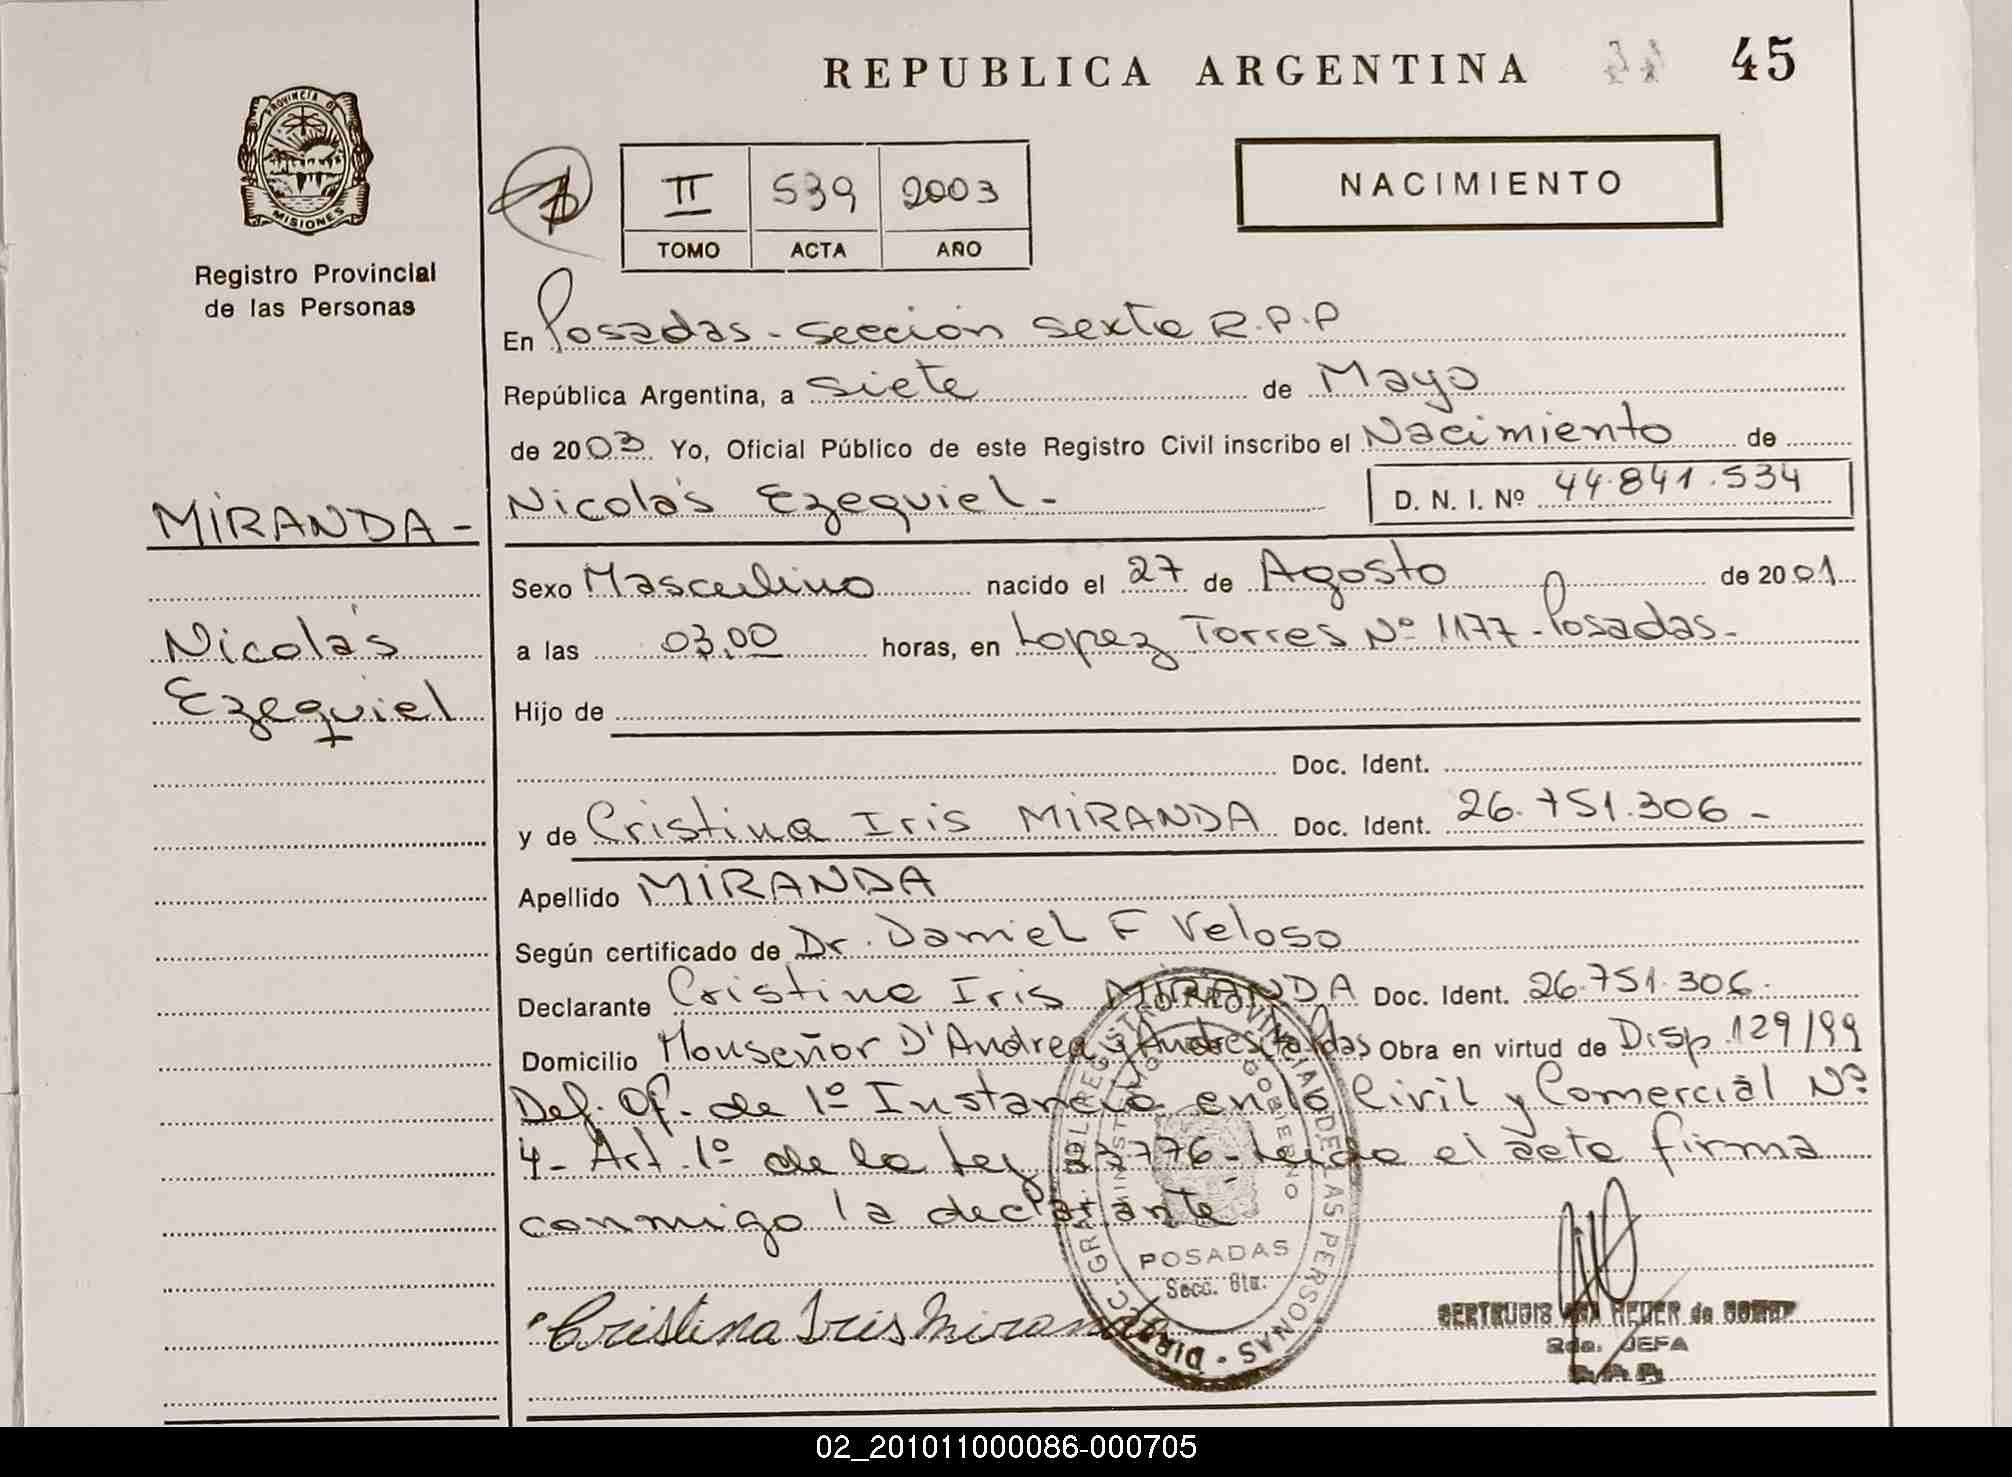 REPUBLICA ARGENTINA 45
PROVINCIA DE
MISIONES
Registro Provincial
de las Personas
II 539 2003
TOMO ACTA AÑO
NACIMIENTO
En Posadas - sección sexta R.P.P
República Argentina, a siete de Mayo
de 2003 Yo, Oficial Público de este Registro Civil inscribo el Nacimiento de
Nicolás Ezequiel - D. N. I. Nº 44.841.534
MIRANDA -
Nicolás
Ezequiel
Sexo Masculino nacido el 27 de Agosto de 2001
a las 03,00 horas, en Lopez Torres Nº 1177 - Posadas -
Hijo de
Doc. Ident.
y de Cristina Iris MIRANDA Doc. Ident. 26.751.306 -
Apellido MIRANDA
Según certificado de Dr. Daniel F Veloso
Declarante Cristina Iris MIRANDA Doc. Ident. 26.751.306.
Domicilio Monseñor D'Andrea y Obra en virtud de Disp. 129/99
Def. Of. de 1º Instancia en lo Civil y Comercial Nº
4 - Art. 1º de la Ley 23776 - Leida el acta firma
conmigo la declarante
Cristina Iris Miranda
DIREC. GRAL. DEL REGISTRO PROVINCIAL DE LAS PERSONAS
MINISTERIO GOBIERNO
POSADAS
Secc. 6ta.
GERTRUDIS de
2da. JEFA
02_201011000086-000705